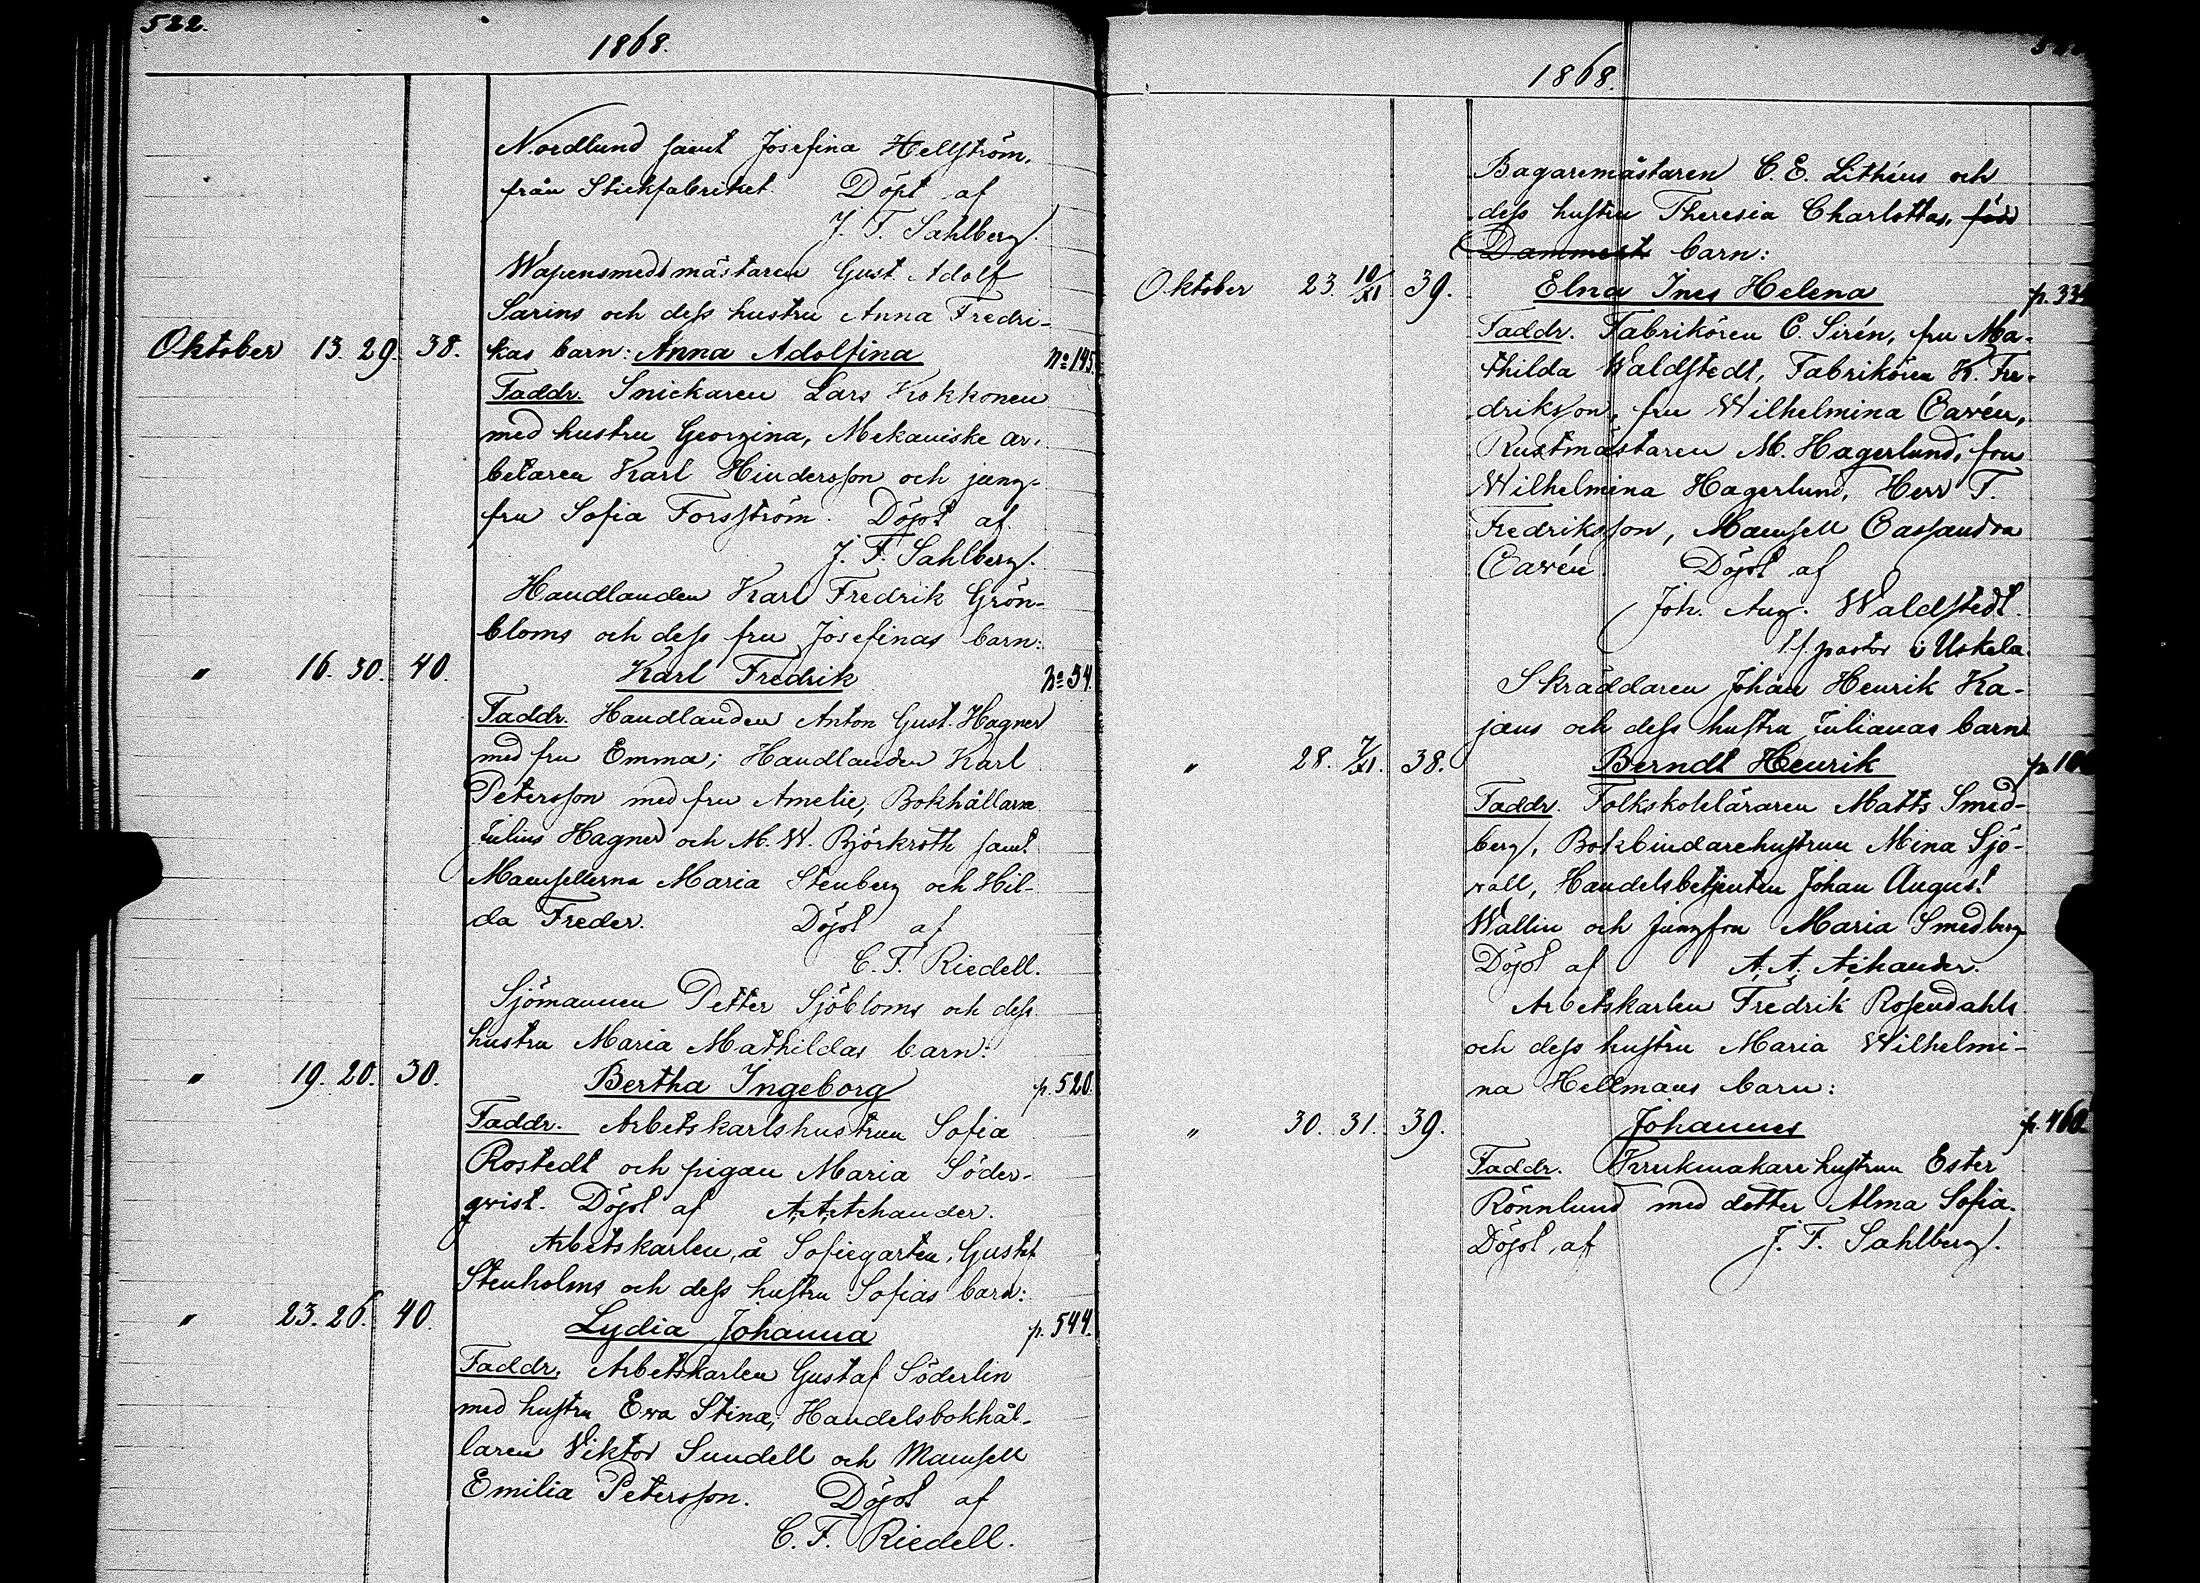 522.
1868.
Nordlund samt Josefina Hellström,
från Stickfabriket. Döpt af
J. F. Sahlberg.
Wapensmedsmästaren Gust. Adolf
Sarins och dess hustru Anna Fredri-
Oktober 13. 29. 38. kas barn: Anna Adolfina No 145.
Faddr. Snickaren Lars Kokkonen
med hustru Georgina, Mekaniske ar-
betaren Karl Hindersson och jung-
fru Sofia Forsström. Döpt af
J. F. Sahlberg.
Handlanden Karl Fredrik Grön-
bloms och dess fru Josefinas barn:
" 16. 30. 40. Karl Fredrik No 34.
Faddr. Handlanden Anton Gust. Hagner
med fru Emma; Handlanden Karl
Petersson med fru Amelie, Bokhållarne
Julius Hagner och M. W. Björkroth samt
Mamsellerna Maria Stenberg och Hil-
da Freder. Döpt af
C. F. Riedell.
Sjömannen Petter Sjöbloms och dess
hustru Maria Mathildas barn:
" 19. 20. 30. Bertha Ingeborg p. 520.
Faddr. Arbetskarlshustrun Sofia
Rostedt och pigan Maria Söder-
qvist. Döpt af A. A. Achander.
Arbetskarlen, å Sofiegarten, Gustaf
Stenholms och dess hustru Sofias barn:
" 23. 26. 40. Lydia Johanna p. 544.
Faddr. Arbetskarlen Gustaf Söderlin
med hustru Ewa Stina, Handelsbokhål-
laren Viktor Sundell och Mamsell
Emilia Petersson. Döpt af
C. F. Riedell.
1868.
Bagaremästaren C. E. Lithéns och
dess hustru Theresia Charlottas, född
Dammert barn:
Oktober 23. 10/XI 39. Elna Ines Helena p. 334
Faddr. Fabrikören C. Sirén, fru Ma-
thilda Waldstedt, Fabrikören K. Fre-
driksson, fru Wilhelmina Cavén,
Rustmästaren M. Hagerlund, fru
Wilhelmina Hagerlund, Herr F.
Fredriksson, Mamsell Cassandra
Cavén. Döpt af
Joh. Aug. Waldstedt.
t.f. pastor i Uskela.
Skräddaren Johan Henrik Ka-
jans och dess hustru Julianas barn
" 28. 7/XI. 38. Berndt Henrik
Faddr. Folkskoleläraren Matts Smed-
berg, Bokbindarehustrun Mina Sjö-
vall, Handelsbetjenten Johan August
Wallin och Jungfru Maria Smedberg
Döpt af A. A. Achander.
Arbetskarlen Fredrik Rosendahls
och dess hustru Maria Wilhelmi-
na Hellmans barn:
" 30. 31. 39. Johannes p. 460
Faddr. Krukmakarehustrun Ester
Rönnlund med dotter Alma Sofia.
Döpt af J. F. Sahlberg.